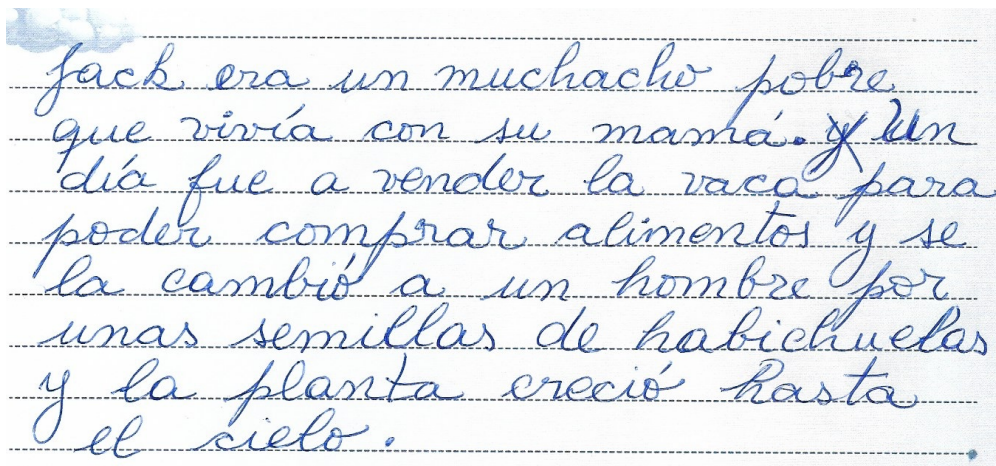 Jack era un muchacho pobre
que vivía con su mamá. Un
día fue a vender la vaca para
poder comprar alimentos y se
la cambió a un hombre por
unas semillas de habichuelas
y la planta creció hasta
el cielo.